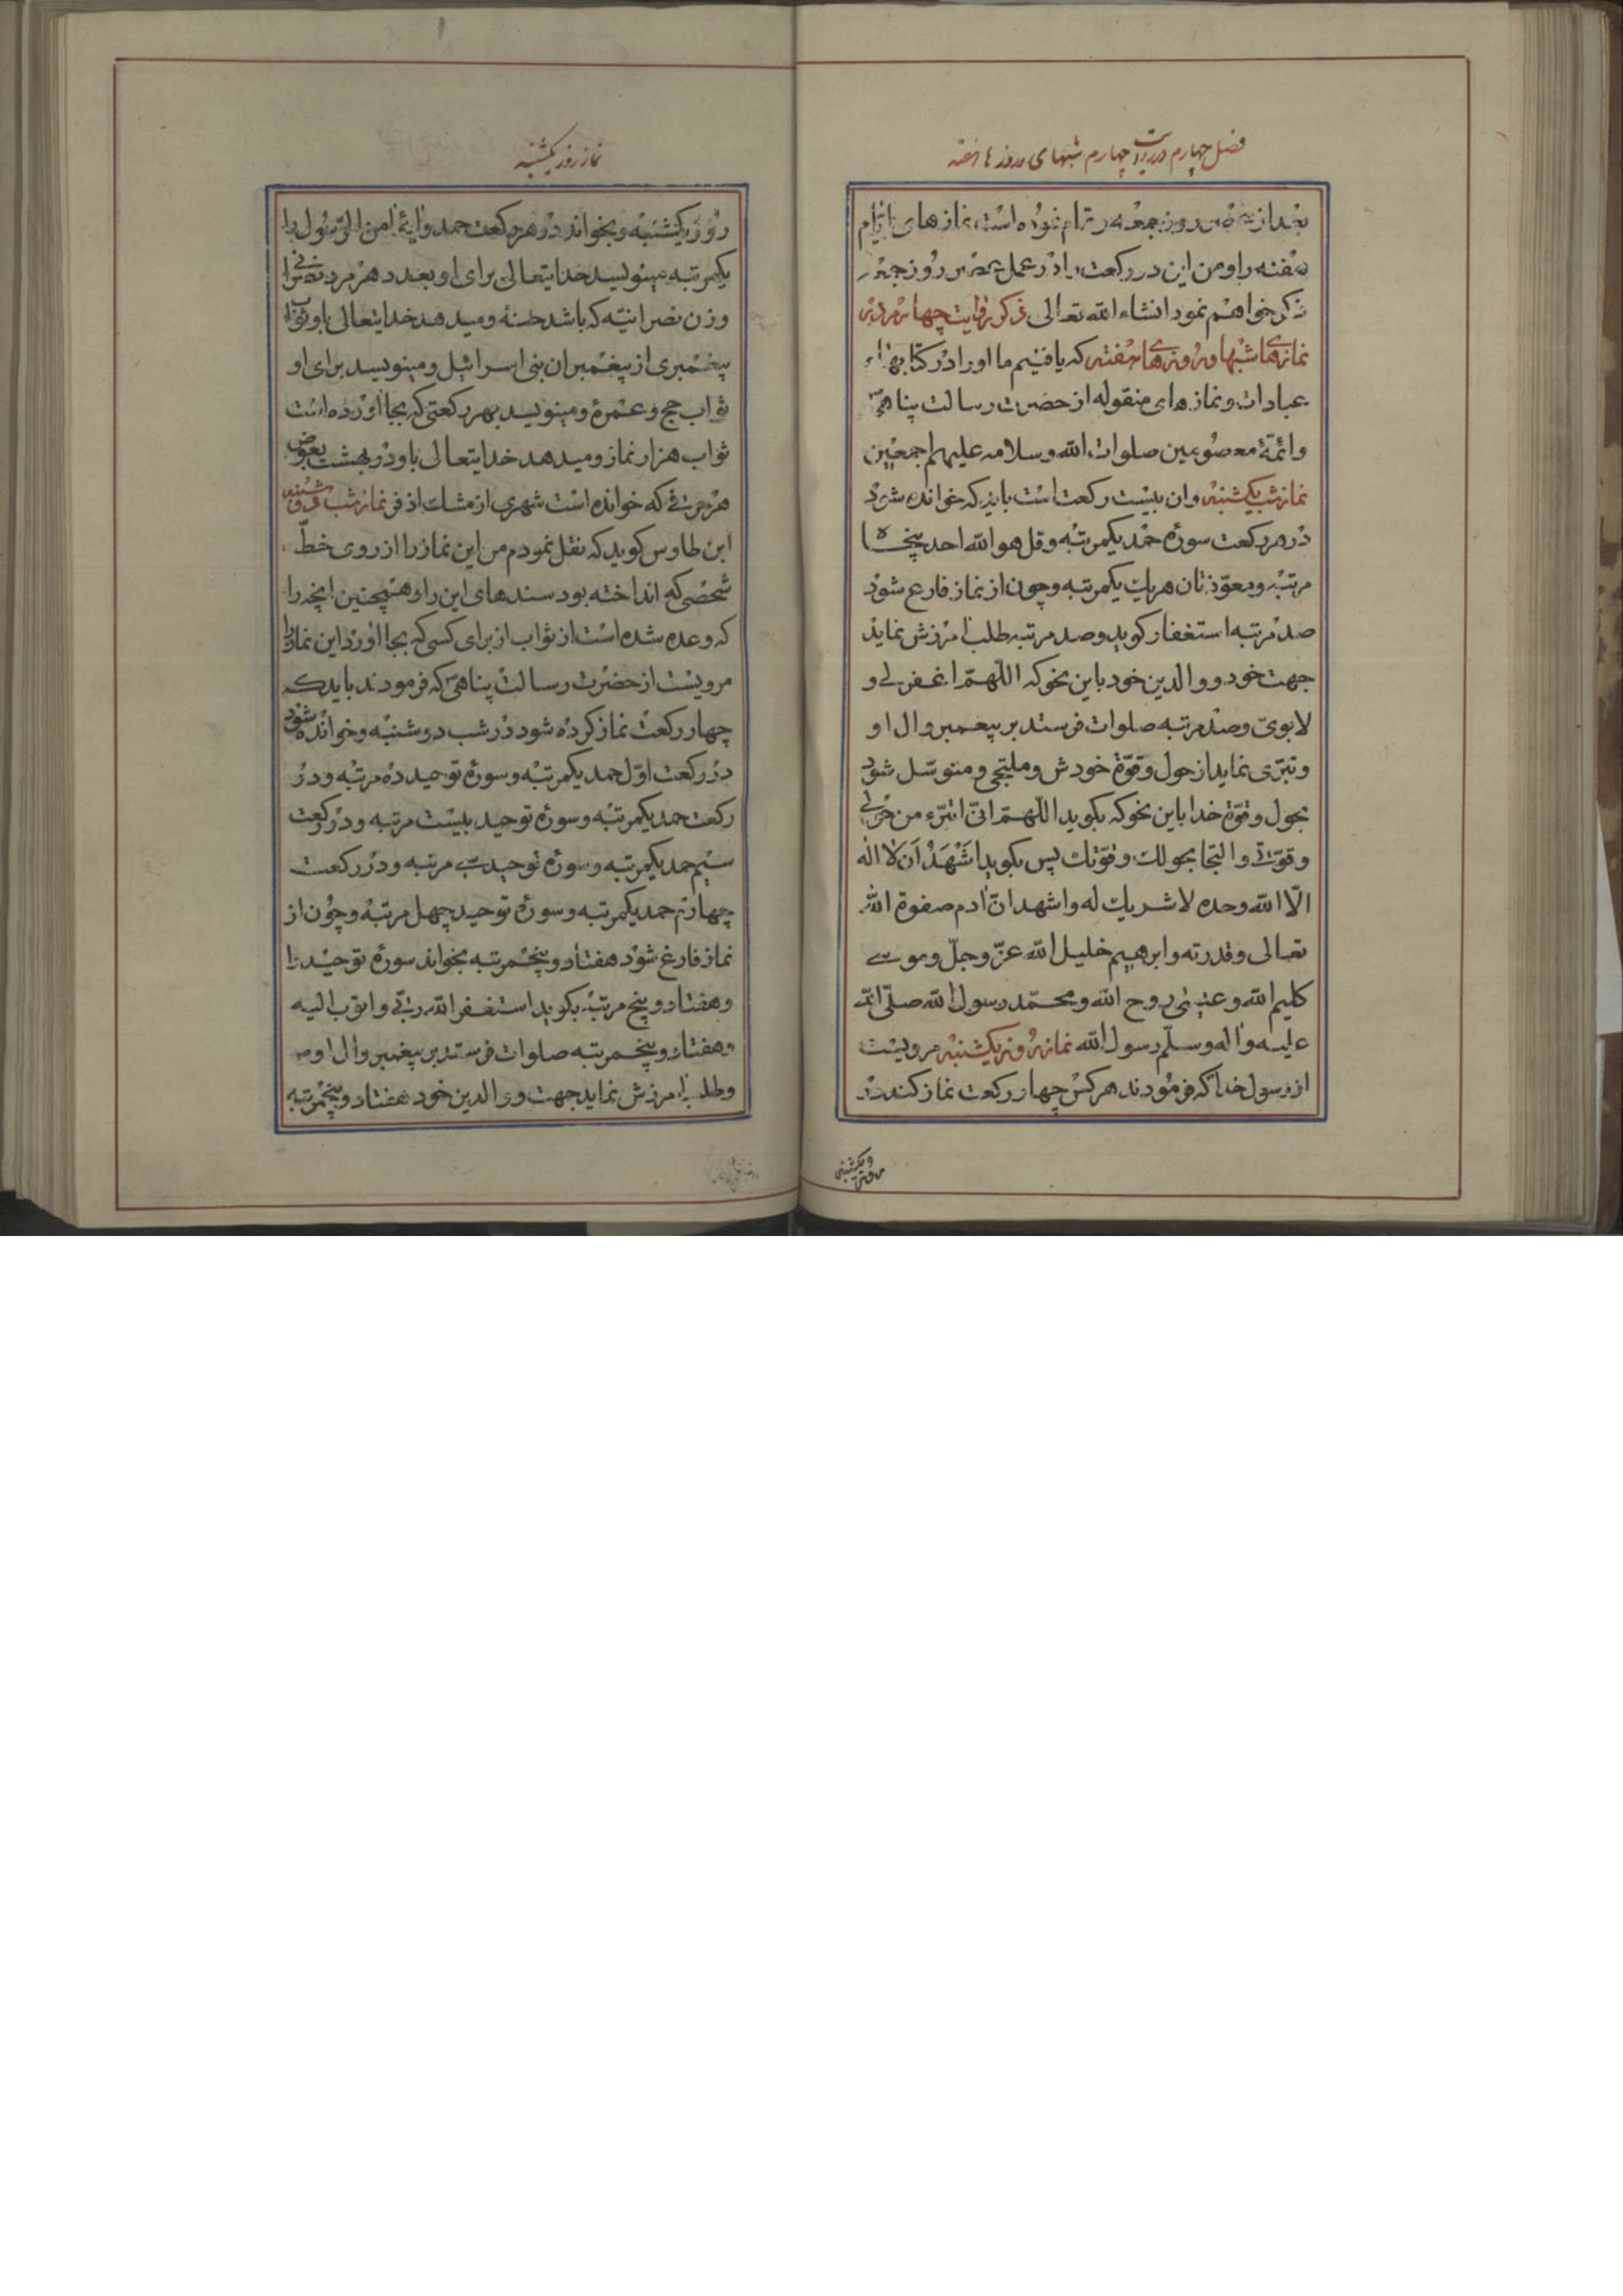 فصل چهارم در روایت چهارم شبهای و روزهای هفته
بعد از روز جمعه تمام نموده است نمازهای ایام
هفته را و من این در رکعت را در عمل روز جمعه
ذکر خواهم نمود انشاء الله تعالی ذکر روایت چهارم در
نمازهای شبها و روزهای هفته که یافتیم ما او را در کتابهای
عبادات و نمازهای منقوله از حضرت رسالت پناهی
وائمّهٔ معصومین صلوات الله وسلامه علیهم اجمعین
نماز شب یکشنبه وان بیست رکعت است باید که خوانده شود
در هر رکعت سورهٔ حمد یکمرتبه وقل هو الله احد پنجاه
مرتبه ومعوّذتان هریك یکمرتبه وچون از نماز فارغ شود
صد مرتبه استغفار کوید وصد مرتبه طلب امرزش نماید
جهت خود و والدین خود باین نحو که اللّهمّ اغفر لی و
لابویّ وصد مرتبه صلوات فرستد بر پیغمبر وال او
وتبرّی نماید از حول وقوّة خودش وملتجی ومتوسّل شود
بحول وقوّة خدا باین نحو که بکوید اللّهمّ انّی اتبرّء من حولی
وقوّتی والتجا بحولك وقوّتك پس بکوید اَشْهَدُ اَن لا اله
الّا الله وحده لا شریك له واشهد انّ ادم صفوة الله
تعالی وقدرته وابرهیم خلیل الله عزّ وجلّ وموسی
کلیم الله وعیسی روح الله ومحمّد رسول الله صلّی الله
علیه واله وسلّم رسول الله نماز روز یکشنبه مرویست
از رسول خدا که فرمودند هرکس چهار رکعت نماز کند در
روز یکشنبه
نماز روز یکشنبه
روز یکشنبه وبخواند در هر رکعت حمد وایهٔ امن الرّسول را
یکمرتبه مینویسد خدایتعالی برای او بعدد هر مرد نصرانی
وزن نصرانیّه که باشد حسنه ومیدهد خدایتعالی باو ثواب
پیغمبری از پیغمبران بنی اسرائیل ومینویسد برای او
ثواب حج وعمرهٔ ومینویسد بهر رکعتی که بجا آورده است
ثواب هزار نماز ومیدهد خدایتعالی باو در بهشت بعوض
هر حرفی که خوانده است شهری از مشك اذفر نماز شب دوشنبه
ابن طاوس کوید که نقل نمودم من این نماز را از روی خطّ
شخصی که انداخته بود سندهای این را وهمچنین انچه را
که وعده شده است از ثواب از برای کسی که بجا اورد این نماز را
مرویست از حضرت رسالت پناهی که فرمودند باید که
چهار رکعت نماز کرده شود در شب دوشنبه وخوانده شود
در رکعت اوّل حمد یکمرتبه وسورهٔ توحید ده مرتبه ودر
رکعت حمد یکمرتبه وسورهٔ توحید بیست مرتبه ودر رکعت
سیم حمد یکمرتبه وسورهٔ توحید سی مرتبه ودر رکعت
چهارم حمد یکمرتبه وسورهٔ توحید چهل مرتبه وچون از
نماز فارغ شود هفتاد وپنجمرتبه بخواند سورهٔ توحید را
وهفتاد وپنج مرتبه بکوید استغفر الله ربّی واتوب الیه
وهفتاد وپنجمرتبه صلوات فرستد بر پیغمبر وال او
وطلب امرزش نماید جهت والدین خود هفتاد وپنجمرتبه